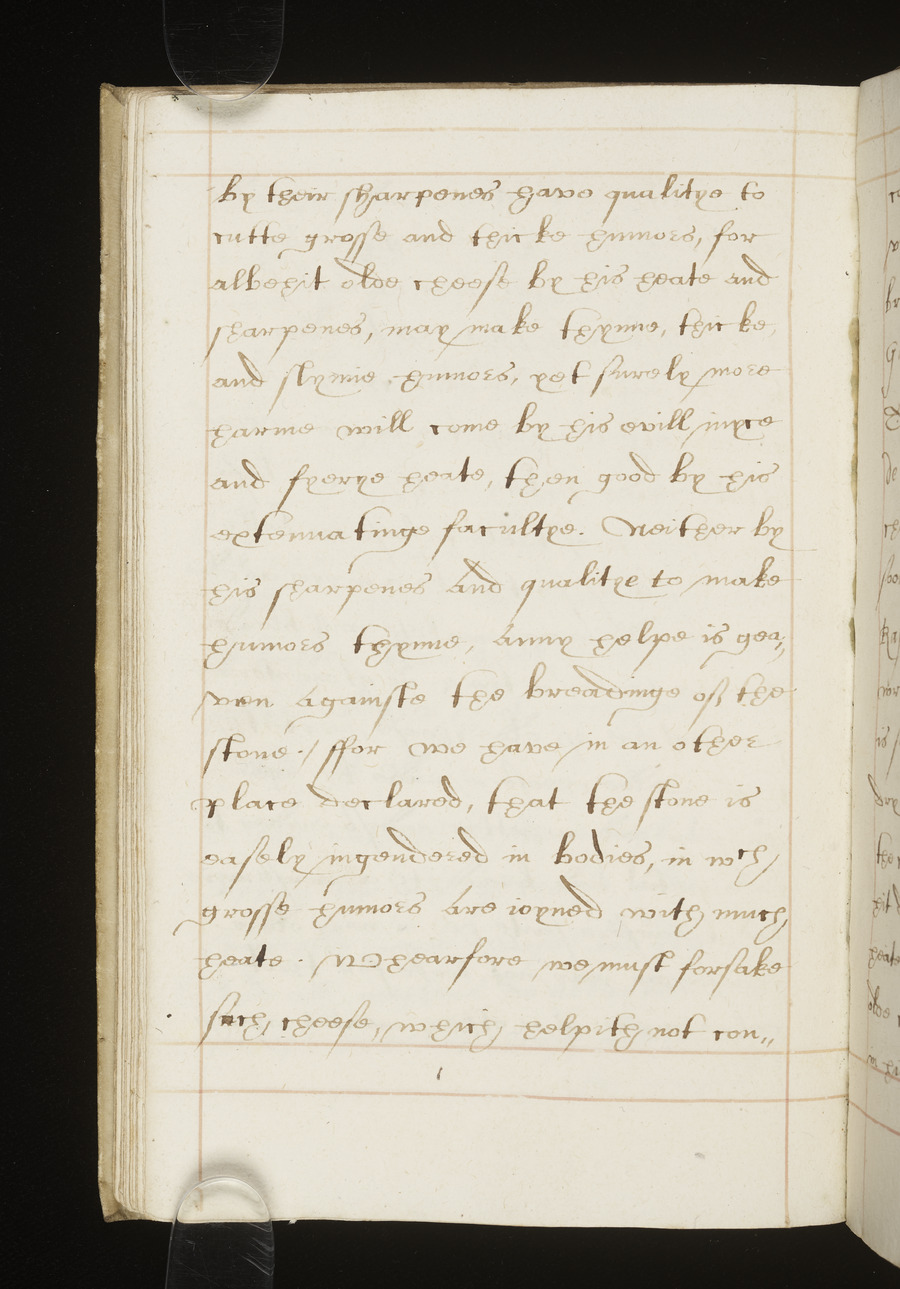 by their sharpenes have qualitye to
cutte grosse and thicke humors, for
albehit olde cheese by his heate and
sharpenes, may make thynne, thicke,
and slymie humors, yet surely more
harme will come by his evill iuyce
and fyerye heate, then good by his
extenuatinge facultye. Neither by
his sharpenes and qualitye to make
humors thynne, anny helpe is gea,,
ven againste the breadinge of the
stone ./ ffor we have in an other
place declared, that the stone is
easely ingendered in bodies, in wch
grosse humors are ioyned with much
heate. Whearfore we must forsake
such cheese, which helpith not con,,